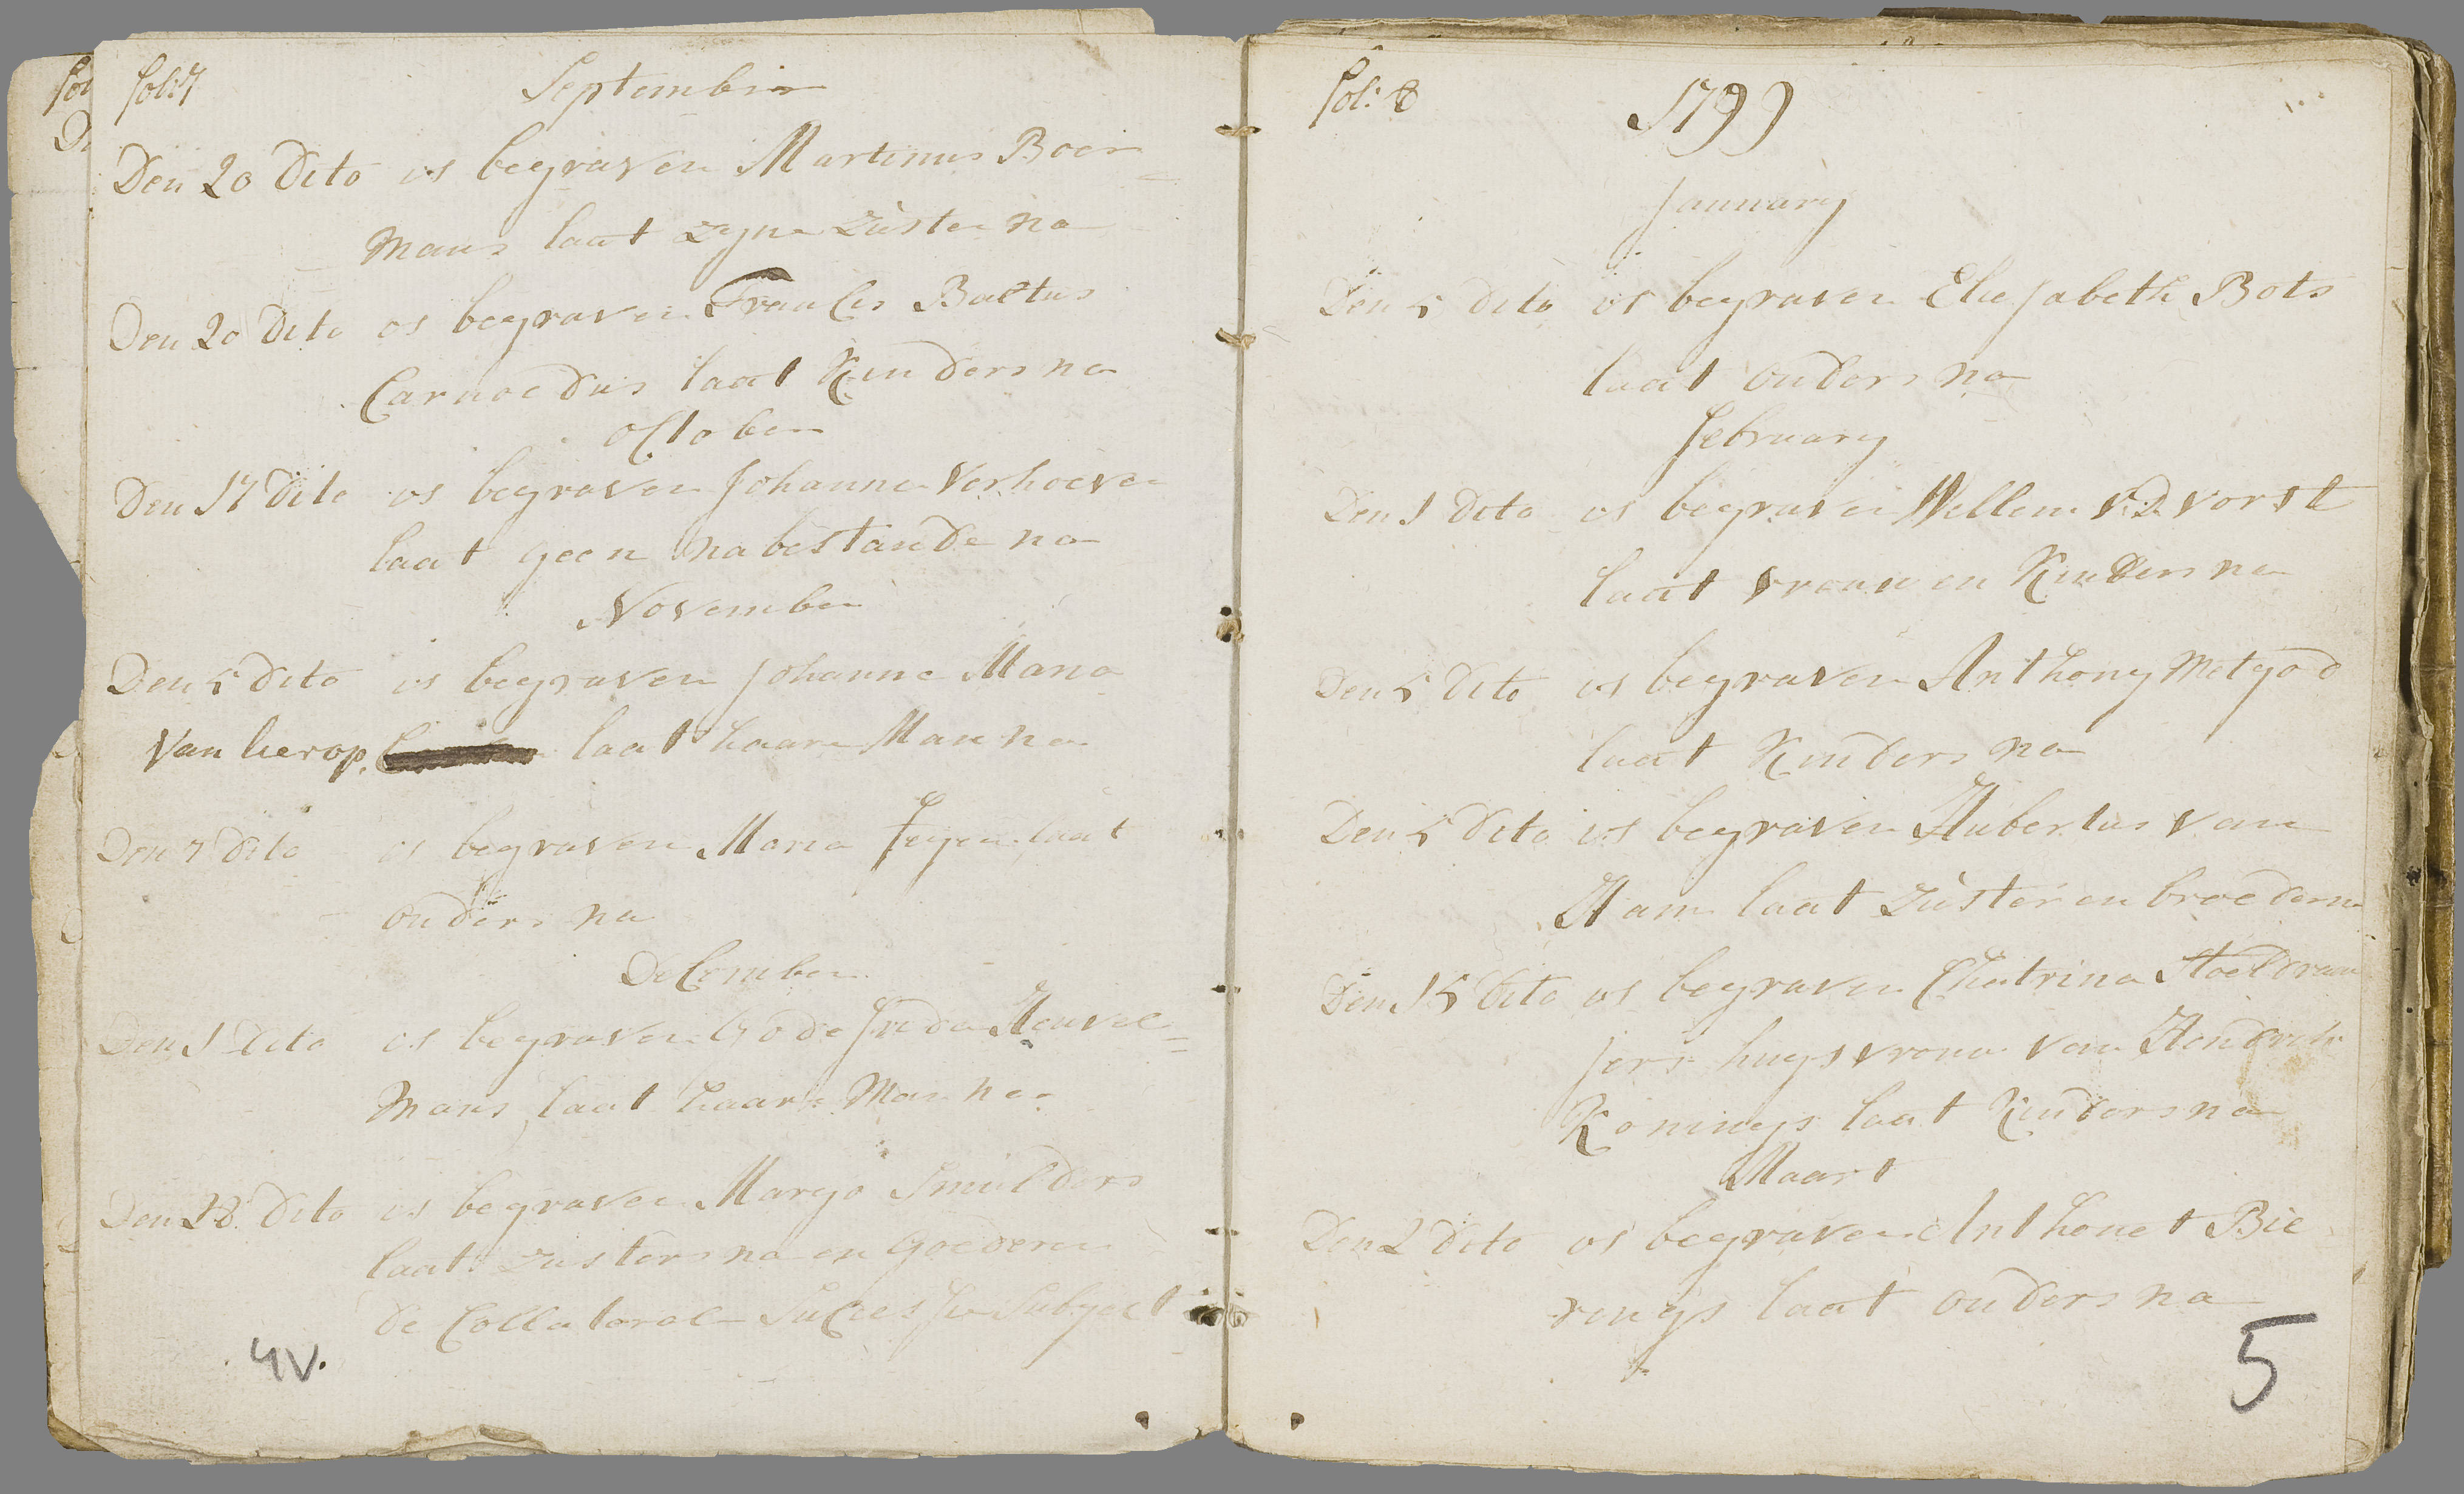 fol: 7
September
Den 20 Dito is begraven Martinus Boer=
mans laat zyne züster na
Den 20 Dito is begraven Francis Baltus
Carnoedus laat Kinders na
October
Den 17 Dito is begraven Johanna Verhoeven
laat geen nabestande na
November
Den 5 Dito is begraven Johanna Maria
van lierop, laat haare Man na
Den 7 Dito is begraven Maria laat
ouders na
December
Den 1 Dito is begraven Godefrida Heuvel=
mans laat haare Man na
Den 28 Dito is begraven Maryo Smulders
laat zusters na en Goederen
de Collaterale Subject
4V.
fol: 8
1799
January
Den 5 Dito is begraven Eliesabeth Bots
laat ouders na
February
Den 1 Dito is begraven Willem V:D vorst
laat vrouw en Kinders na
Den 5 Dito is begraven Anthony Metgod
laat Kinders na
Den 5 Dito is begraven Hubertus van
Ham laat züster en broeder na
Den 15 Dito is begraven Chatrina Stoeldraai
jers huysvrouw van Hendrik
Konings laat Kinders na
Maart
Den 2 Dito is begraven Anthonet Bie
rings laat ouders na
5